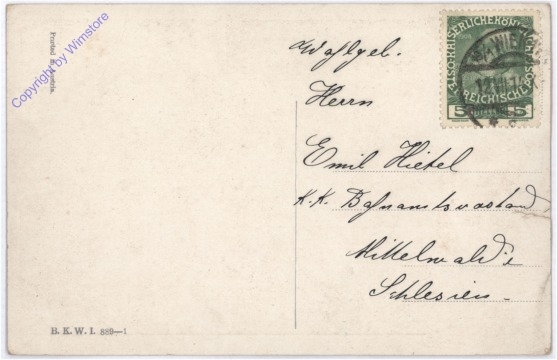 Copyright by Wimstore
Printed in Austria.
KAISERLICHE KÖN
OSTERREICHISCHE POST
5 5
WIEN
Wohlgeb.
Herrn
Emil Hietel
K.K. Bahnamtsvorstand
Mittelwalde
Schlesien.
B. K. W. I. 889—1